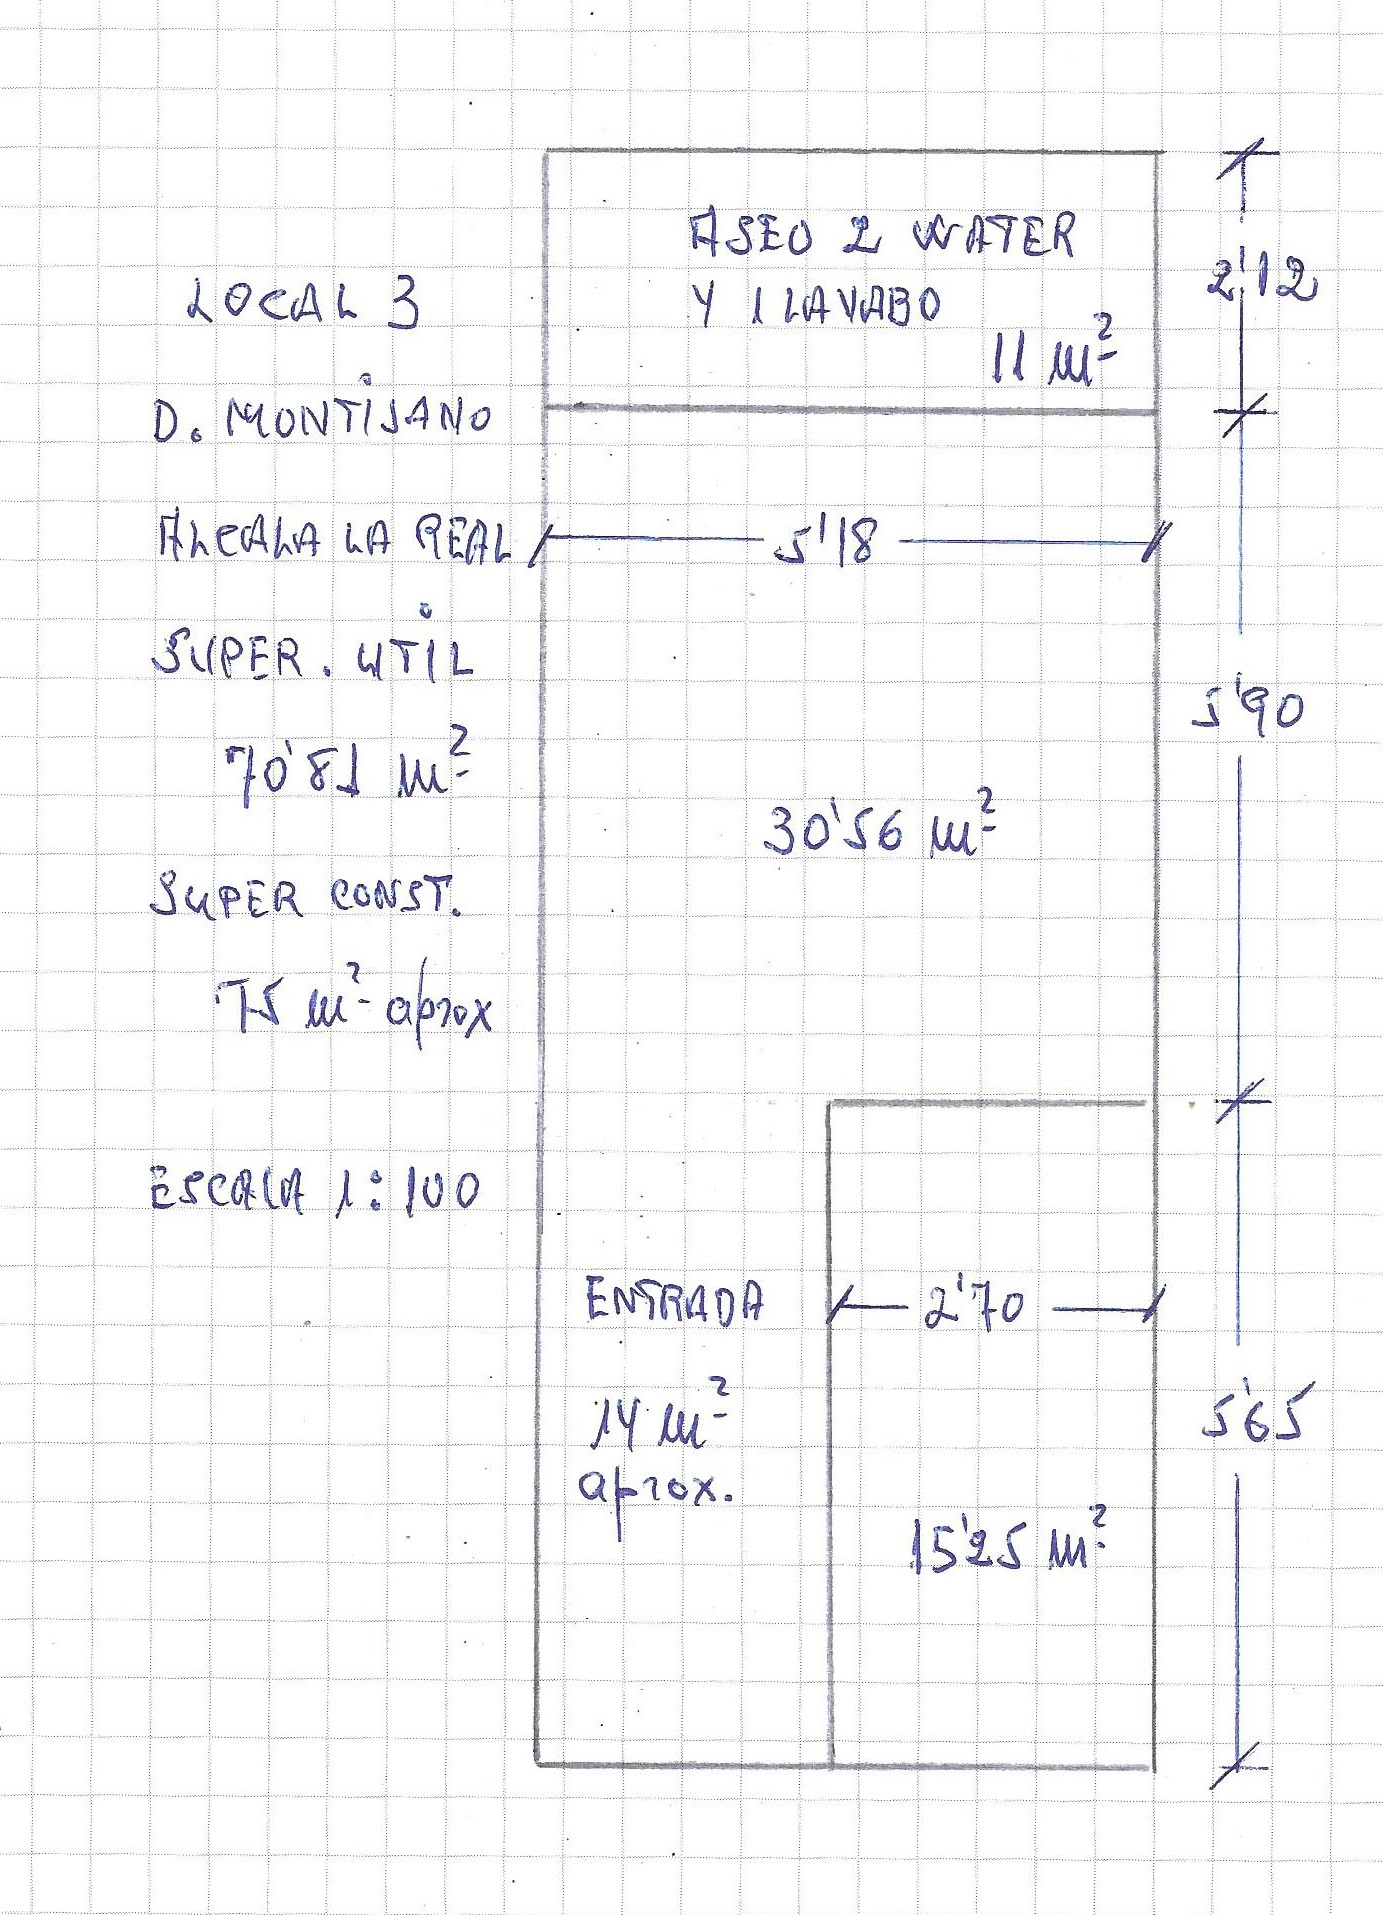 ASEO 2 WATER
Y 1 LAVABO
11 m²
2'12
LOCAL 3
D. MONTIJANO
ALCALA LA REAL
5'18
SUPER. UTIL
70'81 m²
5'90
30'56 m²
SUPER CONST.
75 m² aprox
ESCALA 1:100
ENTRADA
2'70
14 m²
aprox.
5'65
15'25 m²